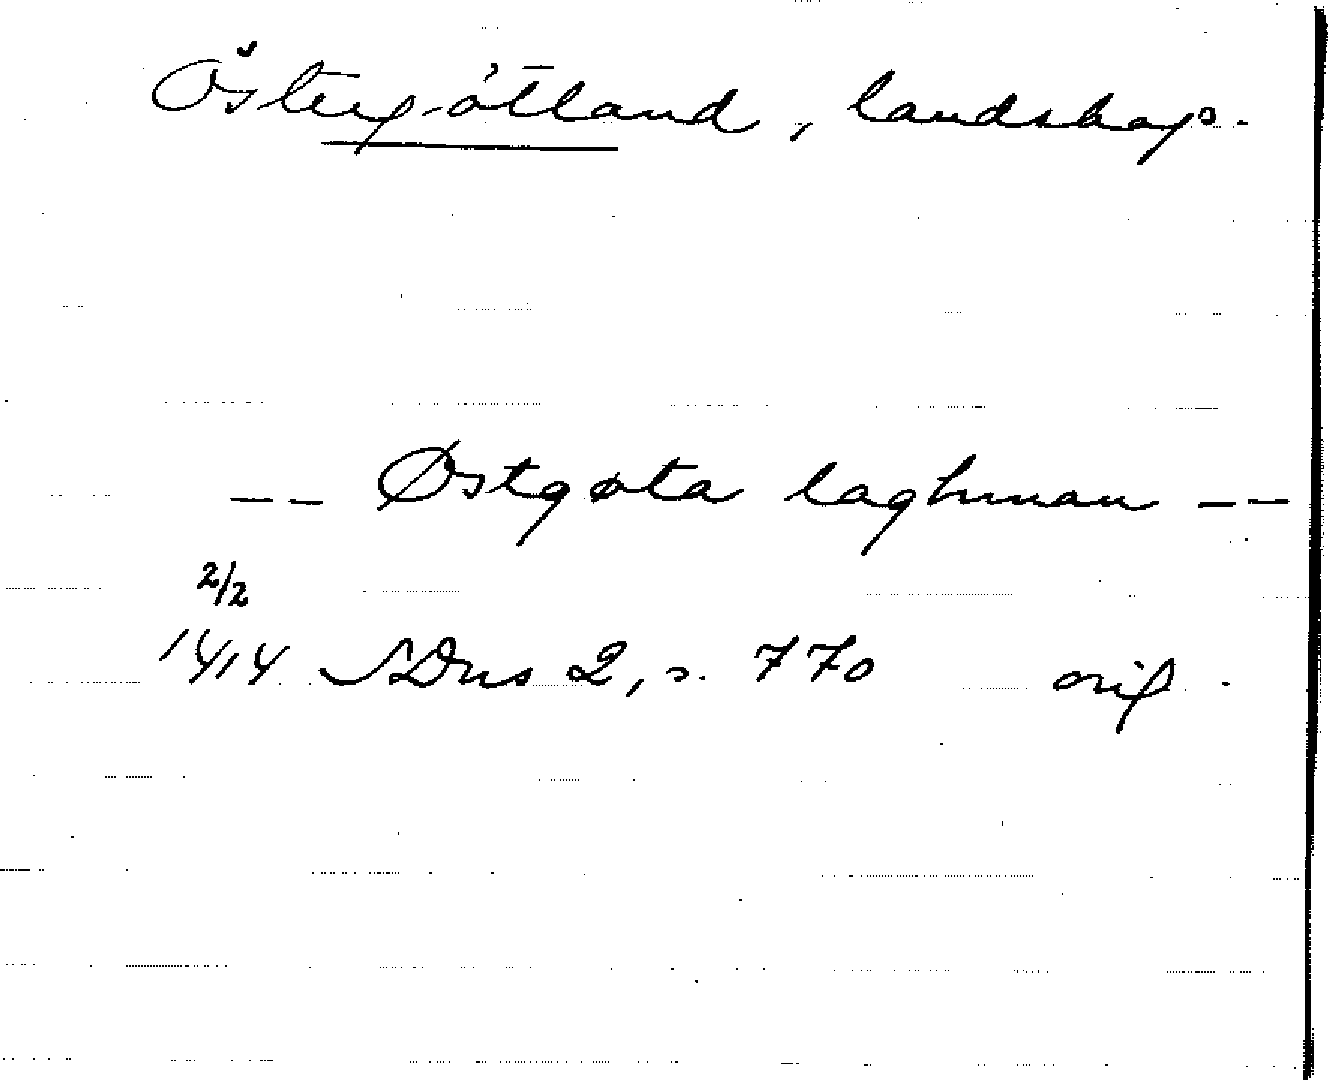 Östergötland, landskap.
-- Østgøta laghman --
2/2
1414 SDns 2, s. 770 orig.